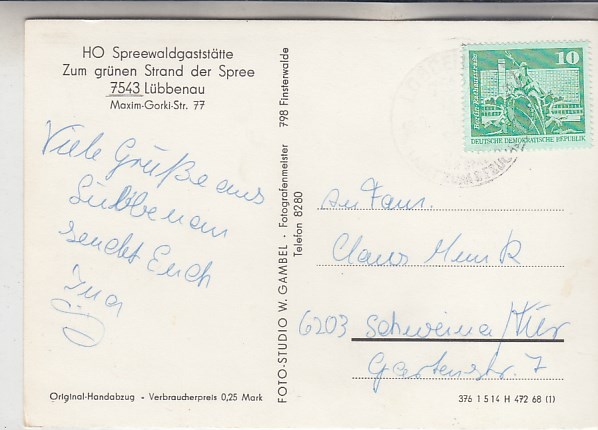 HO Spreewaldgaststätte
Zum grünen Strand der Spree
7543 Lübbenau
Maxim-Gorki-Str. 77
Viele Grüße aus
Lübbenau
sendet Euch
Ina
Original-Handabzug - Verbraucherpreis 0,25 Mark
FOTO-STUDIO W. GAMBEL · Fotografenmeister 798 Finsterwalde
Telefon 8280
10
DEUTSCHE DEMOKRATISCHE REPUBLIK
An Fam.
Claus Munk
6203 Schweina/
Gartenstr. 7
376 1 5 14 H 472 68 (1)